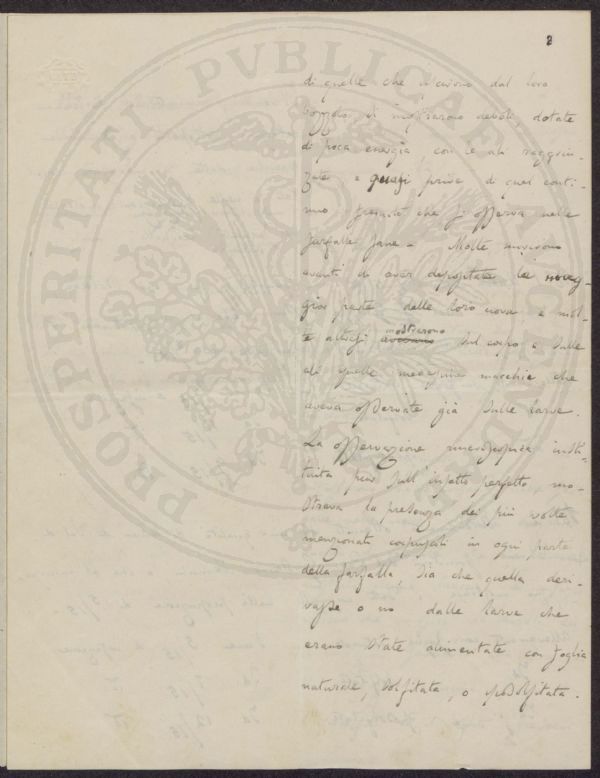 2
di quelle che uscirono dal loro
bozzolo si mostrarono deboli, dotate
di poca energia con le ali raggrin-
zate e quasi prive di quel conti-
nuo fremito che si osserva nelle
farfalle sane. Molte morirono
avanti di aver depositata la mag-
gior parte delle loro uova e mol-
te altresì mostrarono sul corpo e sulle
ali quelle medesime macchie che
aveva osservate già sulle larve.
La osservazione microscopica insti-
tuita pure sull'insetto perfetto, mo-
strava la presenza dei più volte
menzionati corpuscoli in ogni parte
della farfalla, sia che quella deri-
vasse o no dalle larve che
erano state alimentate con foglia
naturale, solfitata, o iposolfitata.
PROSPERITATI PVBLICAE AVGENDAE